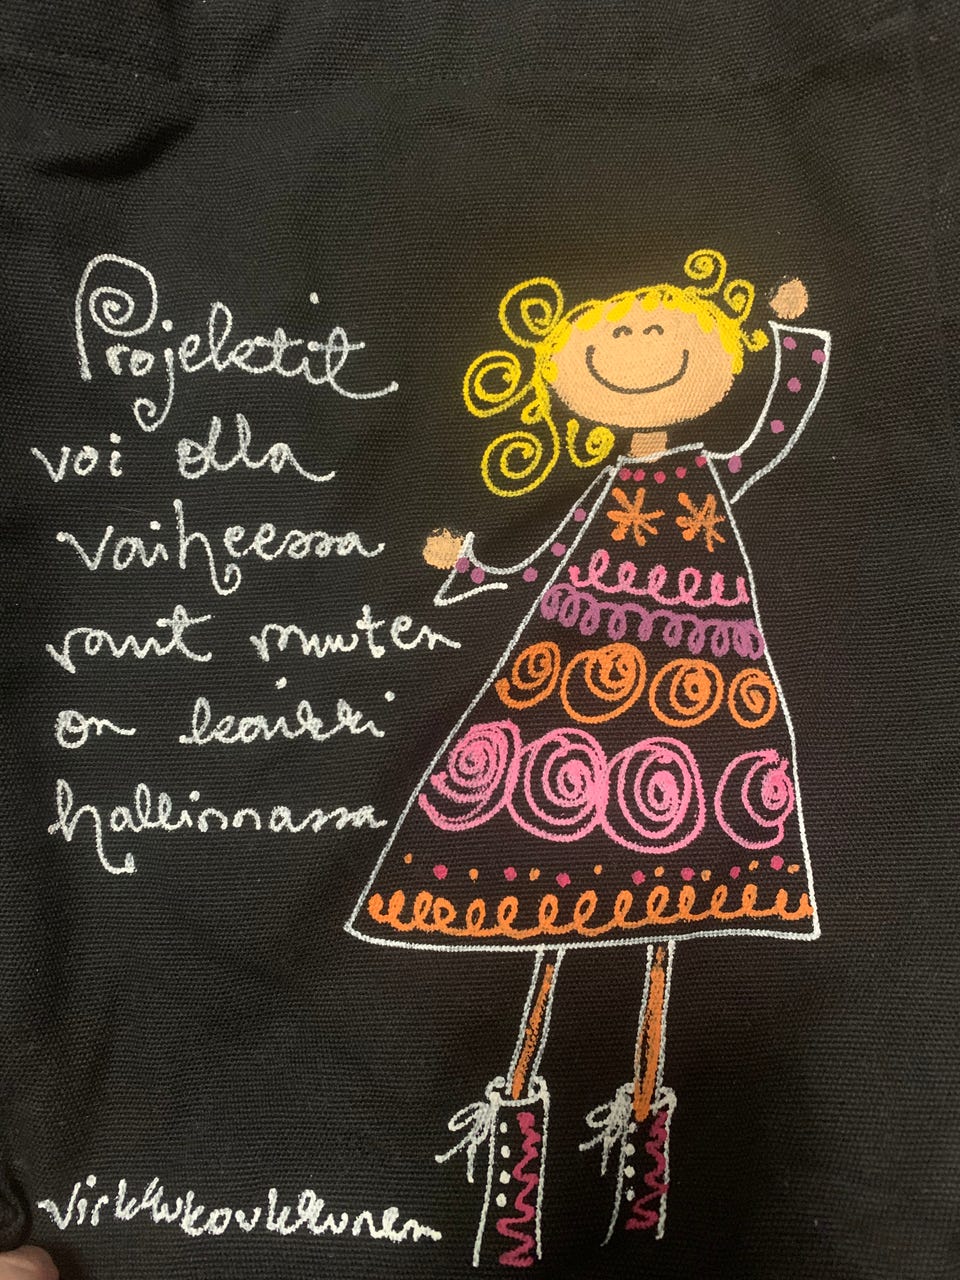 Projektit
voi olla
vaiheessa
vaut muuten
on kaikki
hallinnassa
virkkukoukkunen